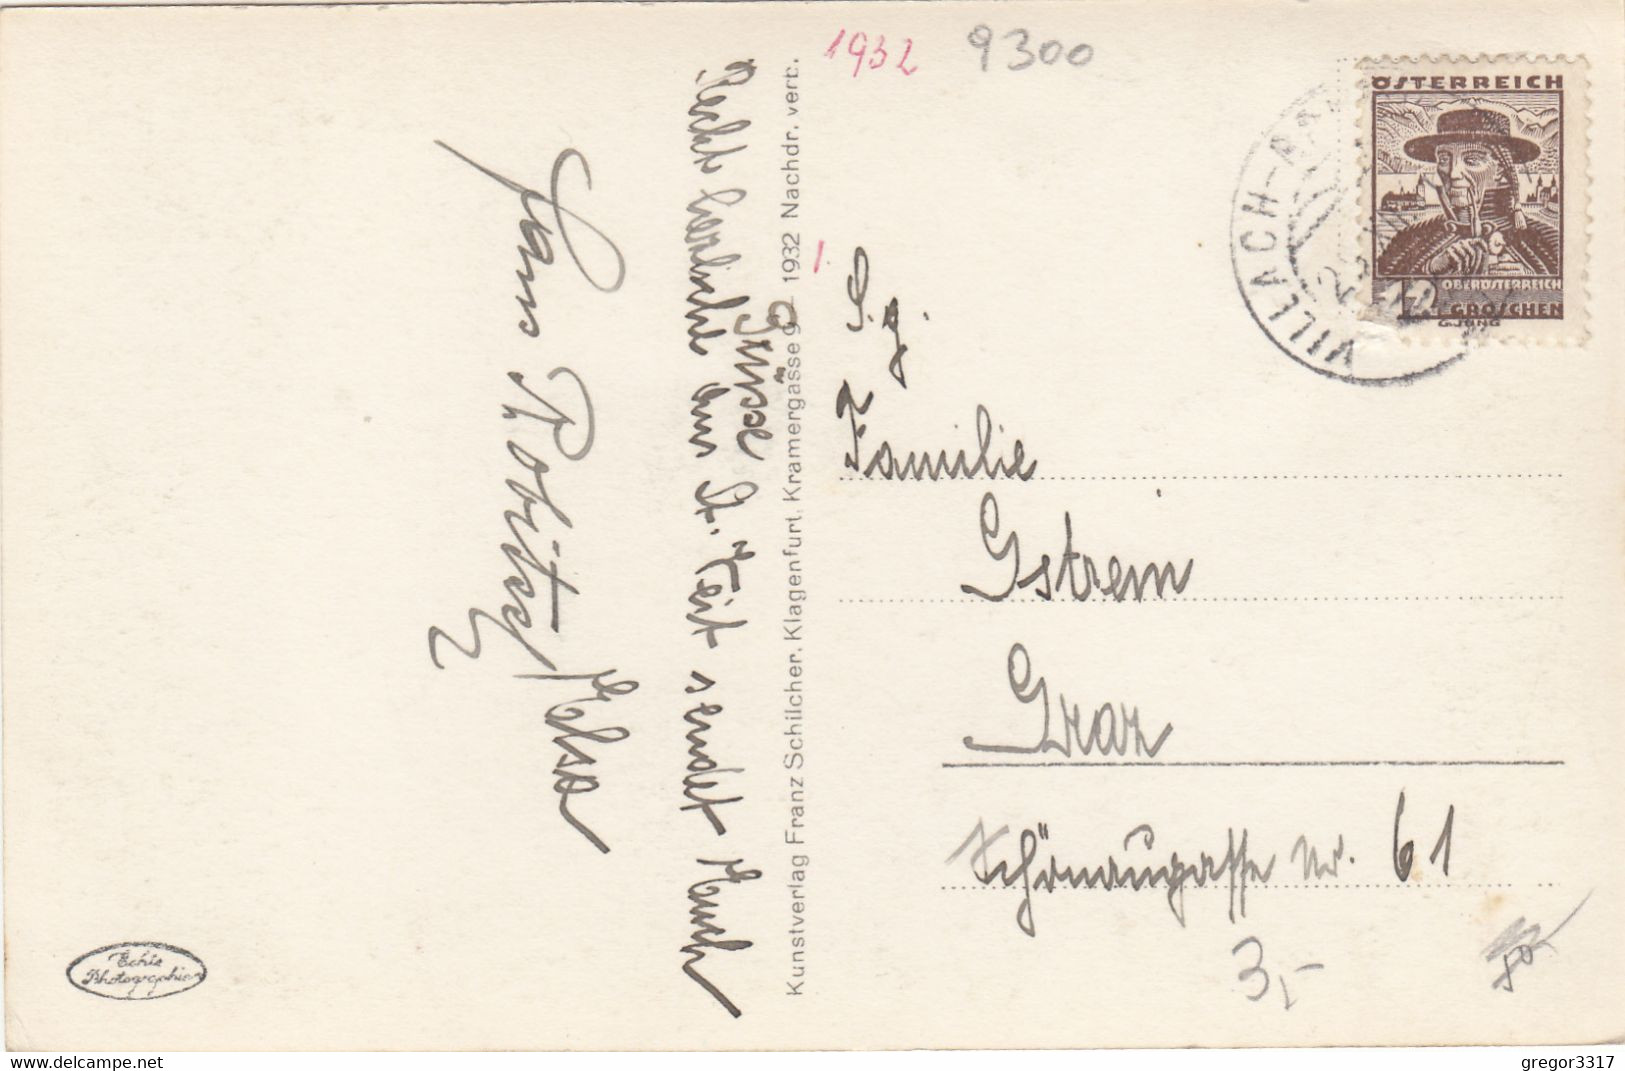 1932 9300
ÖSTERREICH
OBERÖSTERREICH
12 GROSCHEN
G.JUNG
VILLACH-
Recht herzliche
Grüsse
aus St. Veit sendet Euch
Hans Robitsch
Elsa
Kunstverlag Franz Schilcher, Klagenfurt, Kramergasse 9 1932 Nachdr. verb.
S. g.
Familie
Gstrein
Graz
Schönaugasse Nr. 61
3,-
Echte
Photographie
www.delcampe.net
gregor3317